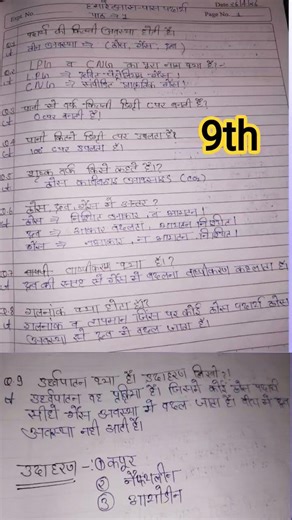 हमारे आस-पास पदार्थ
पाठ न० 1
Date
Page No. 1
9th
Q.1 पदार्थ की कितनी अवस्था होती है।
तीन अवस्था ⇒ (ठोस, द्रव, गैस)
Q.2 LPG व CNG का पूरा नाम क्या है:-
LPG ⇒ द्रवित पेट्रोलियम गैस।
CNG ⇒ संपीडित प्राकृतिक गैस।
Q.3 पानी से बर्फ कितनी डिग्री C पर बनती है।
0 C पर बनती है।
Q.4 पानी कितने डिग्री C पर उबलता है।
100 C पर उबलता है।
Q.5 शुष्क बर्फ किसे कहते हैं?
ठोस कार्बनडाई आक्साइड (CO2)
Q.6 ठोस, द्रव, गैस में अन्तर?
ठोस ⇒ निश्चित आकार व आयतन।
द्रव ⇒ आकार बदलता, आयतन निश्चित।
गैस ⇒ न आकार, न आयतन निश्चित।
Q.7 वाष्पीकरण क्या है।?
द्रव की सतह से गैस में बदलना वाष्पीकरण कहलाता है।
Q.8 गलनांक क्या होता है)?
गलनांक वह तापमान जिस पर कोई ठोस पदार्थ ठोस
अवस्था से द्रव में बदल जाता है।
Q 9 उर्ध्वपातन क्या है। उदाहरण लिखो?।
उर्ध्वपातन वह प्रक्रिया है। जिसमे कोई ठोस पदार्थ
सीधी गैस अवस्था में बदल जाता है। बीच में द्रव
अवस्था नही आती है।
उदाहरण -: ① कपूर
② नैफ्थलीन
③ आयोडीन